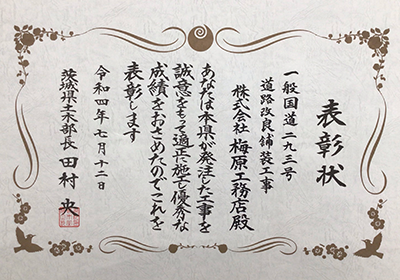 表彰状
一般国道二九三号
道路改良舗装工事
株式会社 梅原工務店殿
あなたは本県が発注した工事を
誠意をもって適正に施工し優秀な
成績をおさめたのでこれを
表彰します
令和四年七月十二日
茨城県土木部長 田村 央